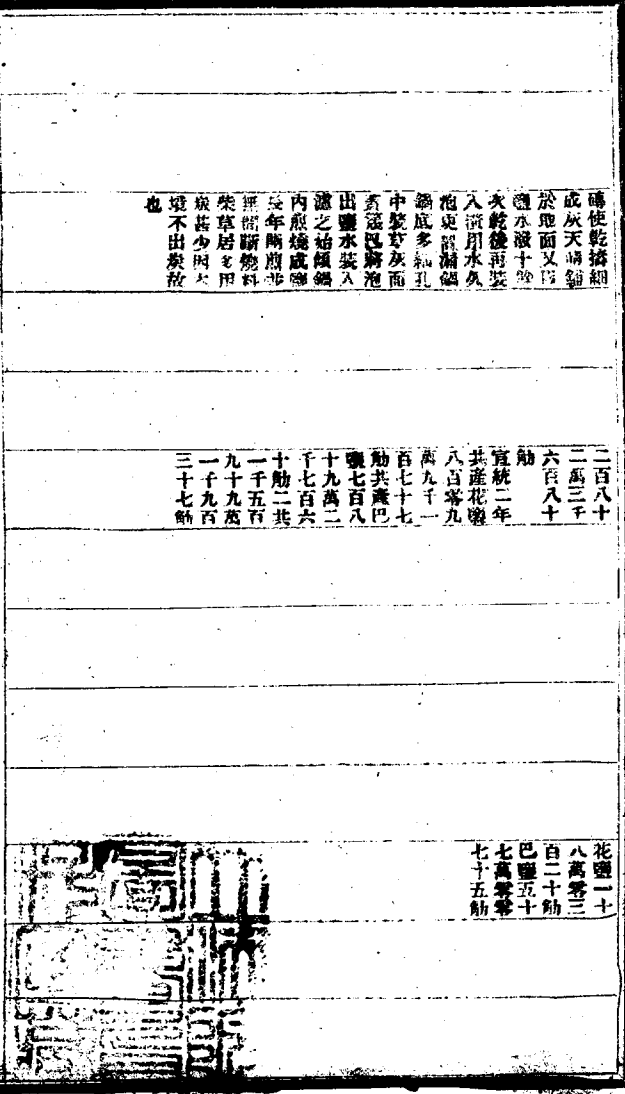 磚使乾擣細
成灰天晴鋪
於地面又
鹽水潑十
灰乾後再裝
入 用水久
泡更 漏鍋
鍋底多細孔
中裝草灰面
蓋 包將泡
出鹽水裝入
濾之始傾鍋
內煎燒成鹽
長年 煎並
無間斷燒料
柴草居多用
炭甚少因本
境不出炭故
也
二百八十
二萬三千
六百八十
觔
宣統二年
共產花鹽
八百零九
萬九千一
百七十七
觔共產巴
鹽七百八
十九萬二
千七百六
十觔二共
一千五百
九十九萬
一千九百
三十七觔
花鹽一十
八萬零三
百二十觔
巴鹽五十
七萬零零
七十五觔